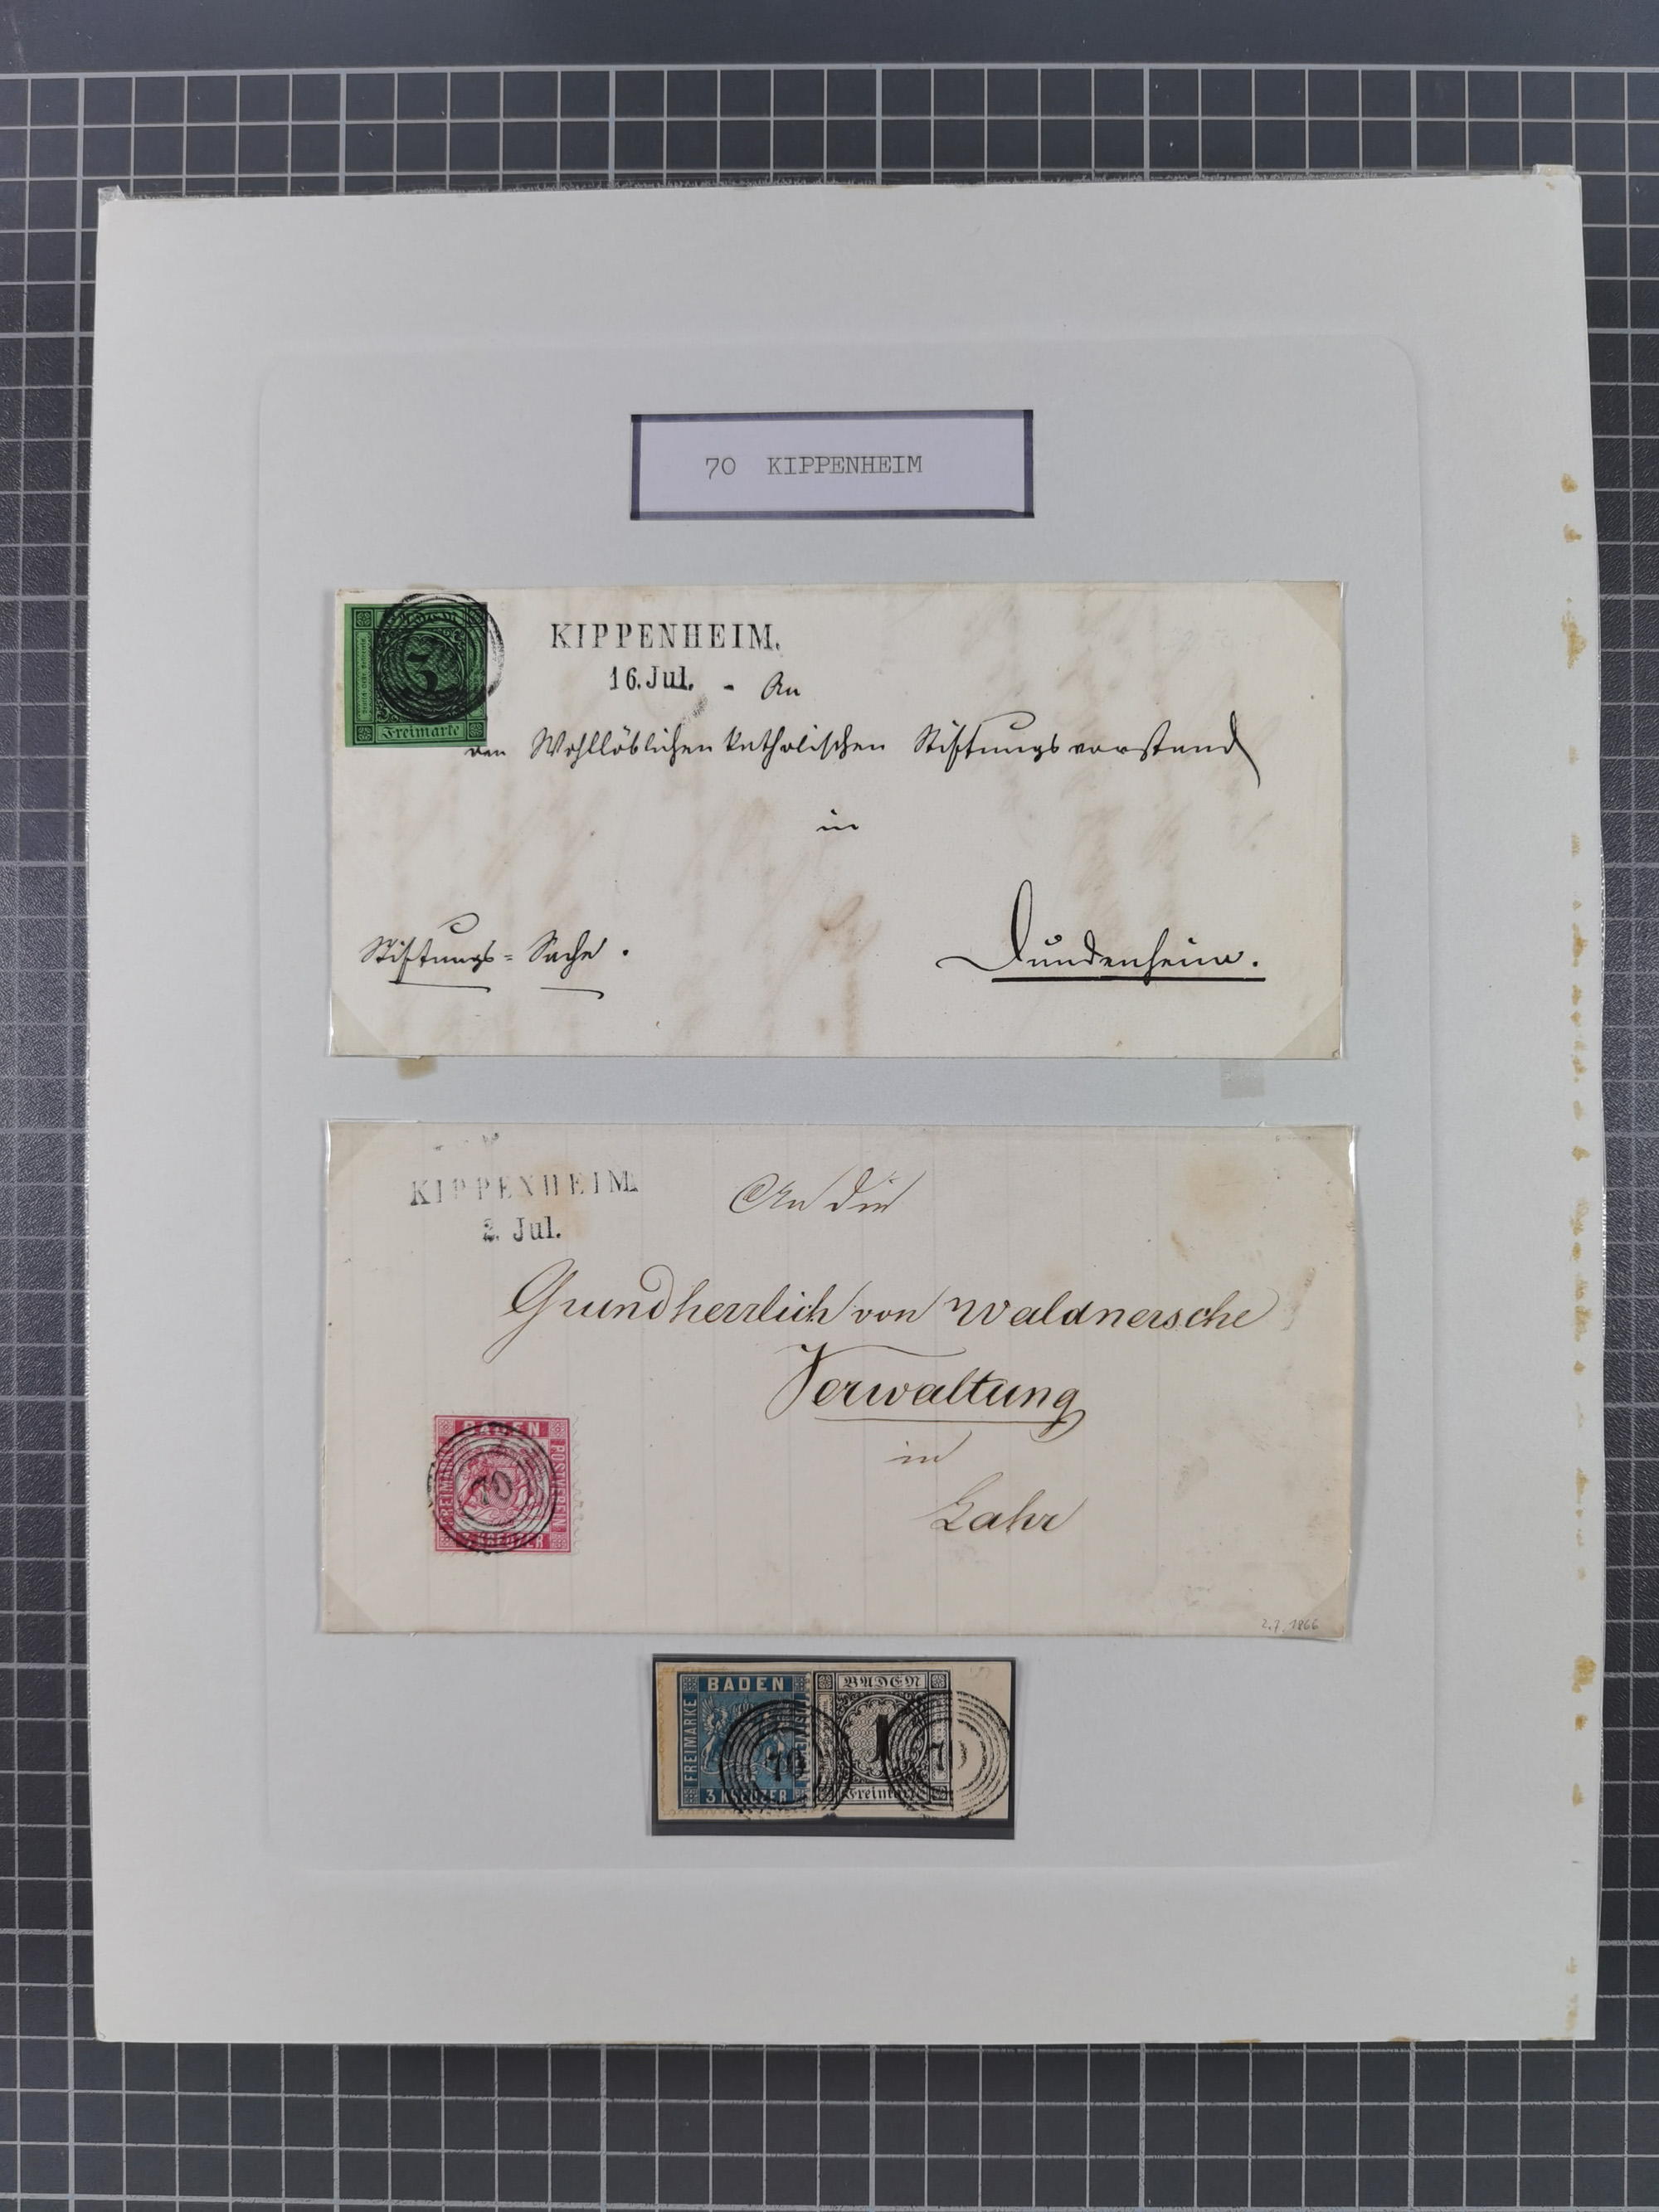 70 KIPPENHEIM
3
Freimarke
KIPPENHEIM.
16. Jul. - An
den Wohllöblichen katholischen Stiftungsvorstand
in
Stiftungs = Sache.
Dundenheim.
KIPPENHEIM.
2. Jul.
An die
Grundherrlich von Waldnersche
Verwaltung
in
Lahr
BADEN
FREIMARKE
POSTVEREIN
70
KREUZER
2.7.1866
BADEN
FREIMARKE
70
3 KREUZER
BADEN
1
Freimarke